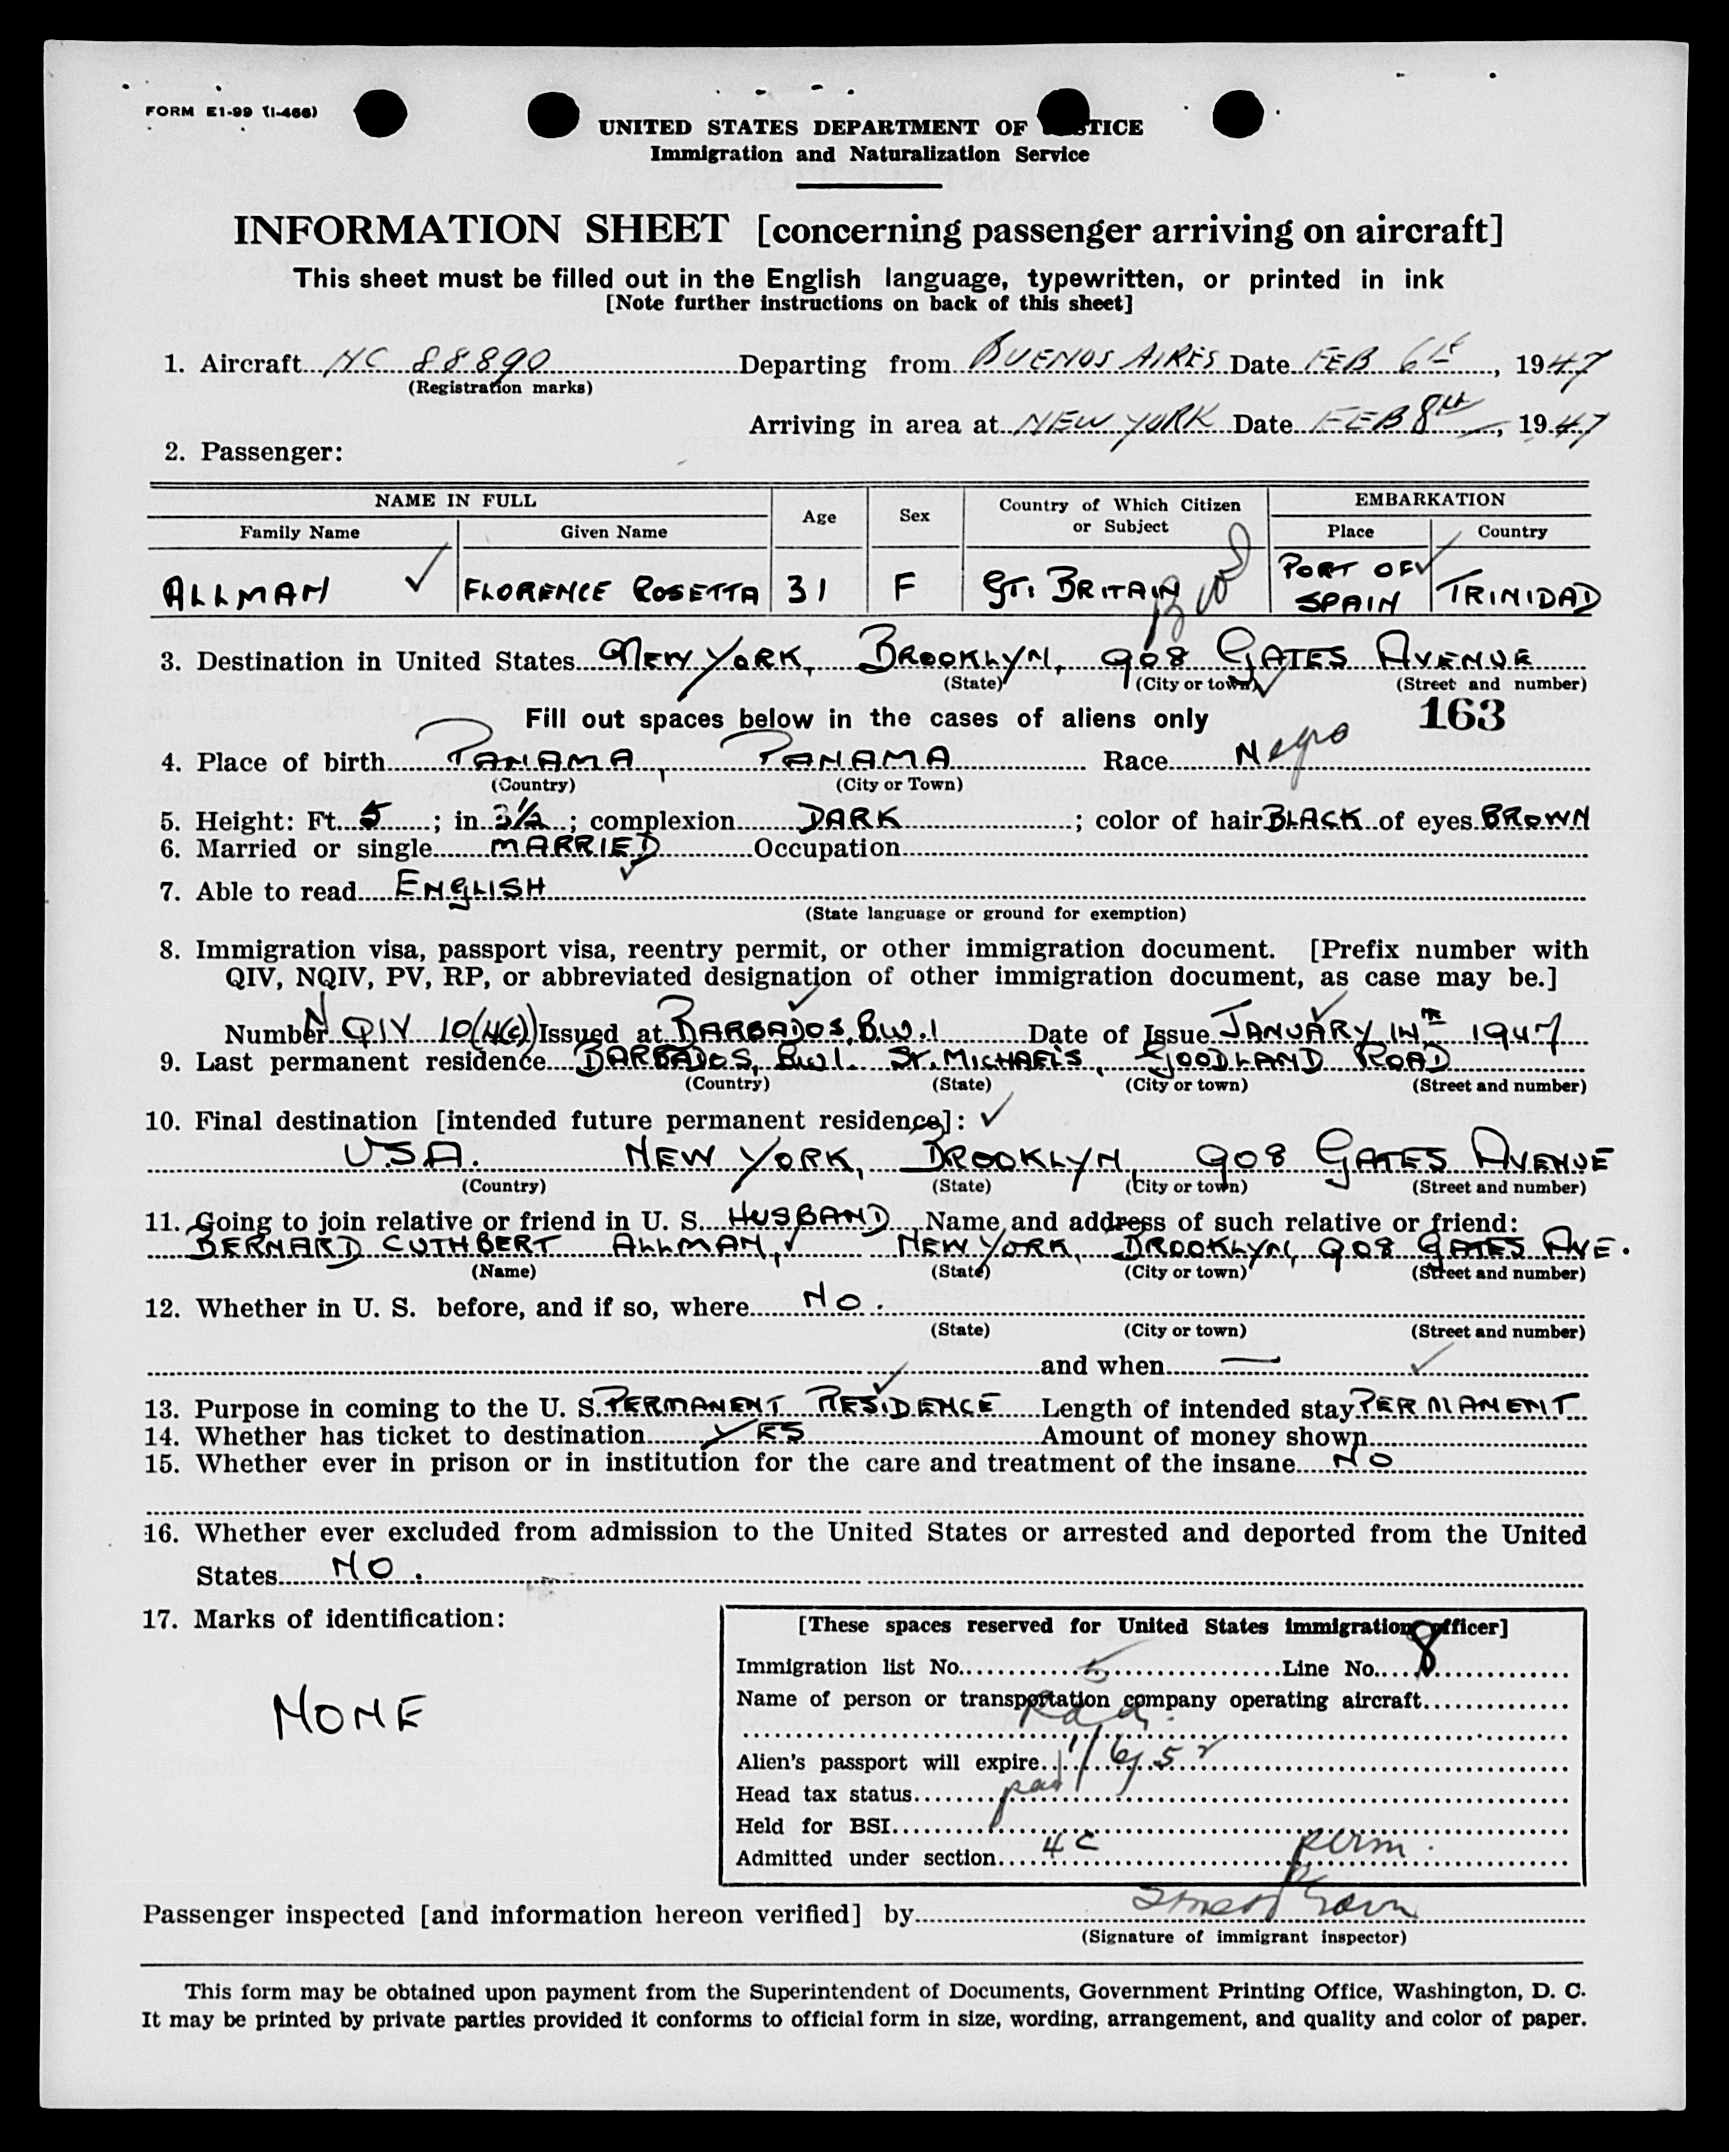 FORM E1-99 (I-466)
UNITED STATES DEPARTMENT OF JUSTICE
Immigration and Naturalization Service
INFORMATION SHEET [concerning passenger arriving on aircraft]
This sheet must be filled out in the English language, typewritten, or printed in ink
[Note further instructions on back of this sheet]
1. Aircraft NC 88890 Departing from BUENOS AIRES Date FEB 6th, 1947
(Registration marks)
Arriving in area at NEW YORK Date FEB 8th, 1947
2. Passenger:
NAME IN FULL Age Sex Country of Which Citizen or Subject EMBARKATION
Family Name Given Name Place Country
ALLMAN FLORENCE ROSETTA 31 F GT. BRITAIN BWI PORT OF SPAIN TRINIDAD
3. Destination in United States NEW YORK, BROOKLYN, 908 GATES AVENUE
(State) (City or town) (Street and number)
Fill out spaces below in the cases of aliens only 163
4. Place of birth PANAMA, PANAMA Race Negro
(Country) (City or Town)
5. Height: Ft. 5; in. 3½; complexion DARK; color of hair BLACK of eyes BROWN
6. Married or single MARRIED Occupation
7. Able to read ENGLISH
(State language or ground for exemption)
8. Immigration visa, passport visa, reentry permit, or other immigration document. [Prefix number with
QIV, NQIV, PV, RP, or abbreviated designation of other immigration document, as case may be.]
Number NQIV 10(4(c)) Issued at BARBADOS, B.W.I Date of Issue JANUARY 14TH 1947
9. Last permanent residence BARBADOS, B.W.I. ST. MICHAEL'S, GOODLAND ROAD
(Country) (State) (City or town) (Street and number)
10. Final destination [intended future permanent residence]:
U.S.A. NEW YORK, BROOKLYN, 908 GATES AVENUE
(Country) (State) (City or town) (Street and number)
11. Going to join relative or friend in U. S. HUSBAND Name and address of such relative or friend:
BERNARD CUTHBERT ALLMAN, NEW YORK, BROOKLYN, 908 GATES AVE.
(Name) (State) (City or town) (Street and number)
12. Whether in U. S. before, and if so, where NO.
(State) (City or town) (Street and number)
and when —
13. Purpose in coming to the U. S. PERMANENT RESIDENCE Length of intended stay PERMANENT
14. Whether has ticket to destination YES Amount of money shown
15. Whether ever in prison or in institution for the care and treatment of the insane NO
16. Whether ever excluded from admission to the United States or arrested and deported from the United
States NO.
17. Marks of identification:
NONE
[These spaces reserved for United States immigration officer]
Immigration list No. 5 Line No. 8
Name of person or transportation company operating aircraft
Alien's passport will expire 1/6/52
Head tax status pad
Held for BSI
Admitted under section 4C perm.
Passenger inspected [and information hereon verified] by
(Signature of immigrant inspector)
This form may be obtained upon payment from the Superintendent of Documents, Government Printing Office, Washington, D. C.
It may be printed by private parties provided it conforms to official form in size, wording, arrangement, and quality and color of paper.